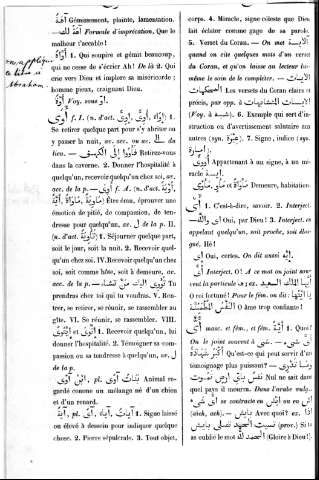 آهَةً Gémissement, plainte, lamentation.
آهَةً لَكَ Formule d'imprécation. Que le
malheur t'accable!
أَوَّاهٌ 1. Qui soupire et gémit beaucoup,
qui ne cesse de s'écrier Ah! De là 2. Qui
crie vers Dieu et implore sa miséricorde :
homme pieux, craignant Dieu.
on applique
ce titre à
Abraham
Voy. sous
Se retirer quelque part pour s'y abriter ou
y passer la nuit, av. acc. ou ac. du
lieu. — فَأْوُوا إِلَى الْكَهْفِ Retirez-vous
dans la caverne. 2. Donner l'hospitalité à
quelqu'un, recevoir quelqu'un chez soi, ac.
acc. de la p. — أَوَى f. I. (n. d'act.
Être ému, éprouver une
émotion de pitié, de compassion, de ten-
dresse pour quelqu'un, av. ل de la p. II.
(n. d'act. تَأْوِيَةٌ) 1. Séjourner quelque part,
soit le jour, soit la nuit. 2. Recevoir quel-
qu'un chez soi. IV. Recevoir quelqu'un chez
soi, soit comme hôte, soit à demeure, av.
acc. de la p. — تُؤْوِي إِلَيْكَ مَنْ تَشَاءُ Tu
prendras chez toi qui tu voudras. V. Ren-
trer, se retirer, se réunir, se rassembler au
gîte. VI. Se réunir, se rassembler. VIII.
1. Recevoir quelqu'un, lui
donner l'hospitalité. 2. Témoigner sa com-
passion ou sa tendresse à quelqu'un, av. ل
de la p.
اِبْنُ آوَى, pl. بَنَاتُ آوَى Animal re-
gardé comme un mélange né d'un chien
et d'un renard.
آيَةٌ, pl. آيَاتٌ, آيٌ 1. Signe laissé
ou élevé à dessein pour indiquer quelque
chose. 2. Pierre sépulcrale. 3. Tout objet,
corps. 4. Miracle, signe céleste que Dieu
fait éclater comme gage de sa parole.
5. Verset du Coran. — On met الآيَةَ
quand on cite quelques mots d'un verset
du Coran, et qu'on laisse au lecteur lui-
même le soin de le compléter. — الآيَاتُ
المُحْكَمَاتُ Les versets du Coran clairs et
précis, par opp. à الآيَاتُ المُتَشَابِهَاتُ
(Voy. à شبه). 6. Exemple qui sert d'in-
struction ou d'avertissement salutaire aux
autres (syn. عِبْرَةٌ). 7. Signe, indice (syn.
أَمَارَةٌ).
Appartenant à un signe, à un mi-
racle
مَأْوًى et مَأْوَاةٌ Demeure, habitation.
أَيْ 1. C'est-à-dire, savoir. 2. Interject.
أَيْ وَاللَّهِ Oui, par Dieu! 3. Interject. en
appelant quelqu'un, soit proche, soit éloi-
gné. Hé!
إِي Oui, certes. On dit aussi
أَيَا Interject. O! A ce mot on joint sou-
vent la particule ها; ex. أَيُّهَا الْمَلِكُ السَّعِيدُ
O roi fortuné! Pour le fém. on dit :
يَا أَيَّتُهَا النَّفْسُ الْمُطْمَئِنَّةُ O âme trop confiante!
أَيٌّ masc. et fém., et fém. أَيَّةٌ 1. Quel?
On le joint souvent à شَيْءٍ. — أَيُّ شَيْءٍ
أَكْبَرُ شَهَادَةً Qu'est-ce qui peut servir d'un
témoignage plus puissant? — وَمَا تَدْرِي
نَفْسٌ بِأَيِّ أَرْضٍ تَمُوتُ Nul ne sait dans
quel pays il mourra. Dans l'arabe vulg.
أَيُّ شَيْءٍ se contracte en أَيْشْ ou en إِيشْ
(aïch, ach). — بِأَيْشْ Avec quoi? ex. إذا
نسيت الحمد تصلي بايش (prov.) Si tu
as oublié le mot الْحَمْدُ لِلَّهِ (Gloire à Dieu!)